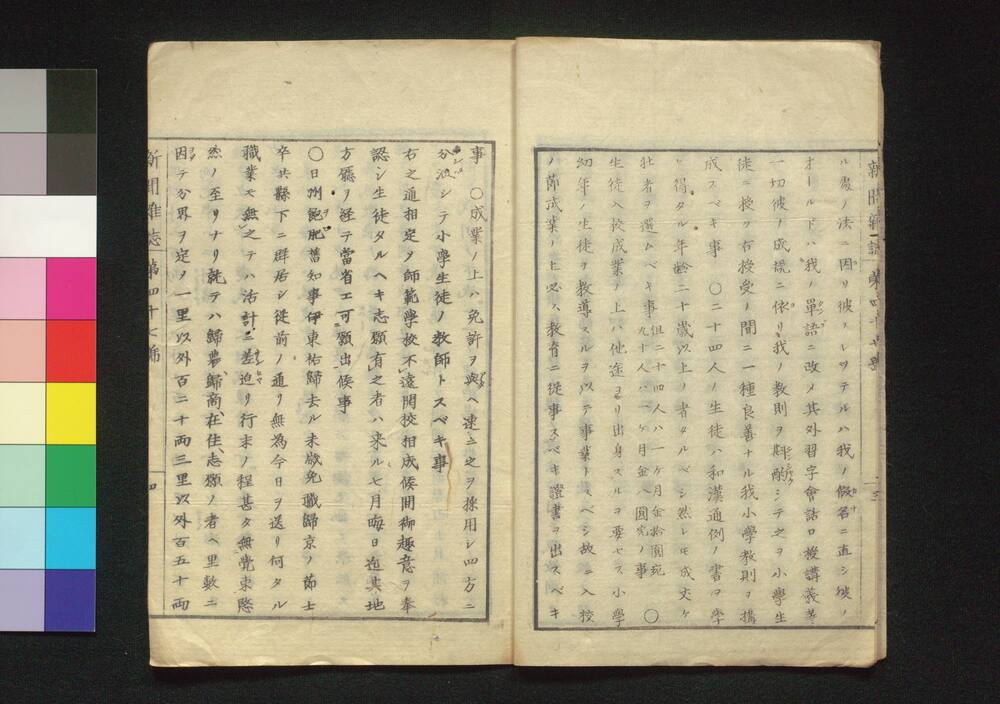 ル處ノ法ニ因リ彼ノレツテルハ我ノ假名ニ直シ彼ノ
オールドハ我ノ單語ニ改メ其外習字會話口授講義等
一切彼ノ成規ニ依リ我ノ教則ヲ斟酌シテ之ヲ小學生
徒ニ授ク右授受ノ間ニ一種良善ナル我小學教則ヲ搆
成スベキ事 〇二十四人ノ生徒ハ和漢通例ノ書ヲ學
ヒ得タル年齡二十歳以上ノ者タルベシ然レモ成丈ケ
壯者ヲ選ムベキ事 但二十四人ハ一ヶ月金拾圓宛 九十人ハ一ヶ月金八圓宛ノ事 〇
生徒入校成業ノ上ハ他途ヨリ出身スルヲ要セス小學
幼年ノ生徒ヲ教導スルヲ以テ事業トスベシ故ニ入校
ノ節成業ノ上必ス教育ニ從事スベキ證書ヲ出スベキ
新聞雜誌 第四十七號 三
事 〇成業ノ上ハ免許ヲ與ヘ速ニ之ヲ採用シ四方ニ
分派シテ小學生徒ノ教師トスベキ事
右之通相定メ師範學校不遠開校相成候間御趣意ヲ奉
認シ生徒タルヘキ志願有之者ハ来ル七月晦日迄其地
方廳ヲ經テ當省エ可願出候事
〇日州飽肥舊知事伊東祐歸去ル未歳免職歸京ノ節士
卒共縣下ニ群居シ従前ノ通リ無為今日ヲ送リ何タル
職業モ無之テハ活計ニ差迫リ行末ノ程甚タ無覺束愍
然ノ至リナリ就テハ歸農歸商在住志願ノ者ヘ里數ニ
因テ分界ヲ定メ一里以外百二十両三里以外百五十両
新聞雜誌 第四十七號 四